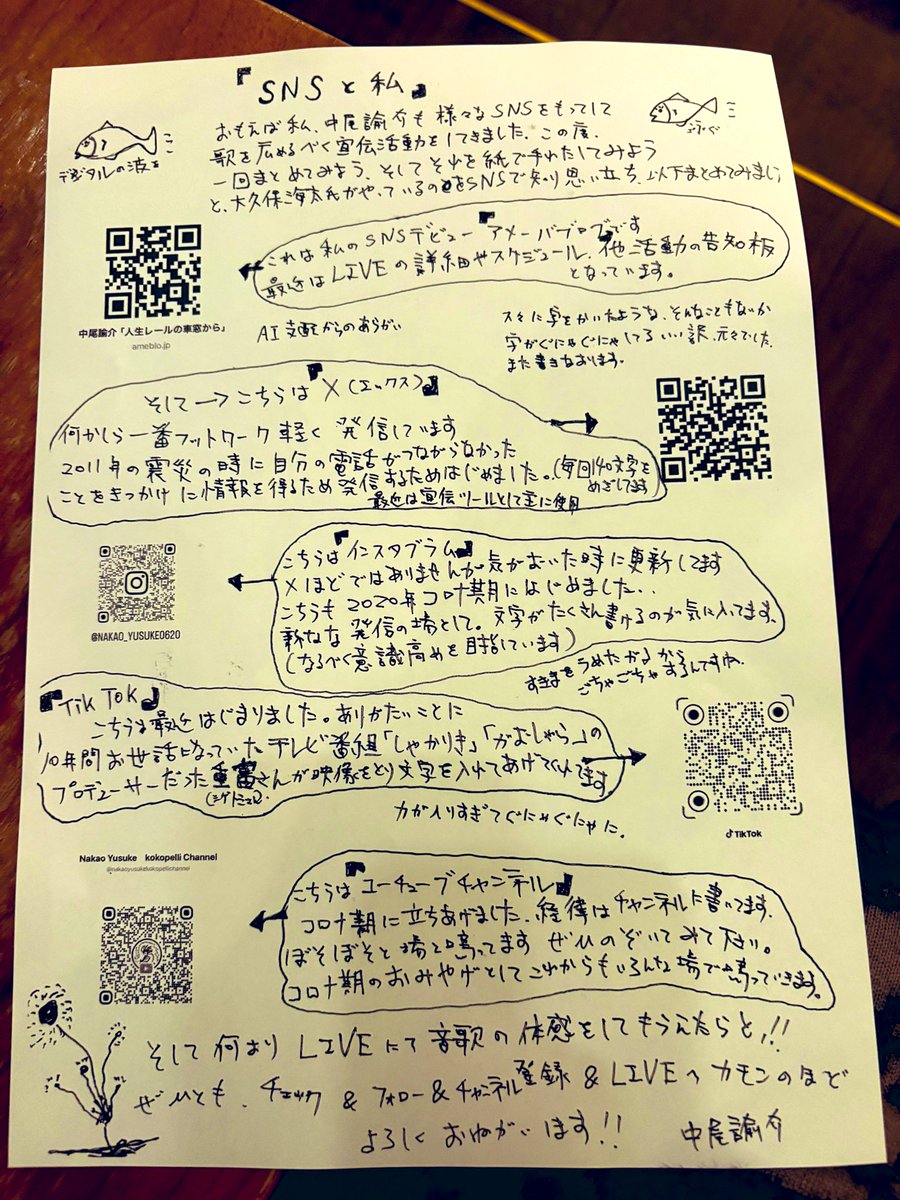 『SNSと私』
おもえば私、中尾諭介も様々なSNSをもってして
歌を広めるべく宣伝活動をしてきました。この度、
一回まとめてみよう、そしてそれを紙で手わたしてみよう
と、大久保海太氏がやっているのをSNSで知り思い立ち、以下まとめてみまし
デジタルの波を
およぐ
これは私のSNSデビュー『アメーバブログ』です
最近はLIVEの詳細やスケジュール、他活動の告知板
となっています。
中尾諭介「人生レールの車窓から」
ameblo.jp
AI支配からのあらがい
久々に字をかいたような、そんなこともないか
字がぐにゃぐにゃしてるいい訳、元々でした。
また書きなおります。
そして→こちらは『X(エックス)』
何かしら一番フットワーク軽く発信しています
2011年の震災の時に自分の電話がつながらなかった
ことをきっかけに情報を得るため発信するためはじめました。(毎回140文字を
めざしてます
最近は宣伝ツールとして主に使用
こちらは『インスタグラム』
Xほどではありませんが気がおいた時に更新してます
こちらも2020年コロナ期にはじめました..
新たな発信の場として。文字がたくさん書けるのが気に入ってます。
(なるべく意識高めを目指しています)
@NAKAO_YUSUKE0620
すきまをうめたがるから
ごちゃごちゃするんですね。
『Tik Tok』
こちらは最近はじまりました。ありがたいことに
10年間お世話になっていたテレビ番組「しゃかりき」「がむしゃら」の
プロデューサーだった重富さんが映像をとり文字を入れてあげてくれてます
(シゲトミ)
TikTok
力が入りすぎてぐにゃぐにゃに。
Nakao Yusuke kokopelli Channel
@nakaoyusukekokopellichannel
こちらは『ユーチューブチャンネル』
コロナ期に立ちあげました。経緯はチャンネルに書いてます。
ぼそぼそと場と鳴ってます ぜひのぞいてみて下さい。
コロナ期のおみやげとしてこれからもいろんな場で鳴っていきます。
そして何より LIVEにて音歌の体感をしてもらえたらと!!
ぜひとも、チェック&フォロー&チャンネル登録&LIVEへカモンのほど
よろしくおねがいします!!
中尾諭介